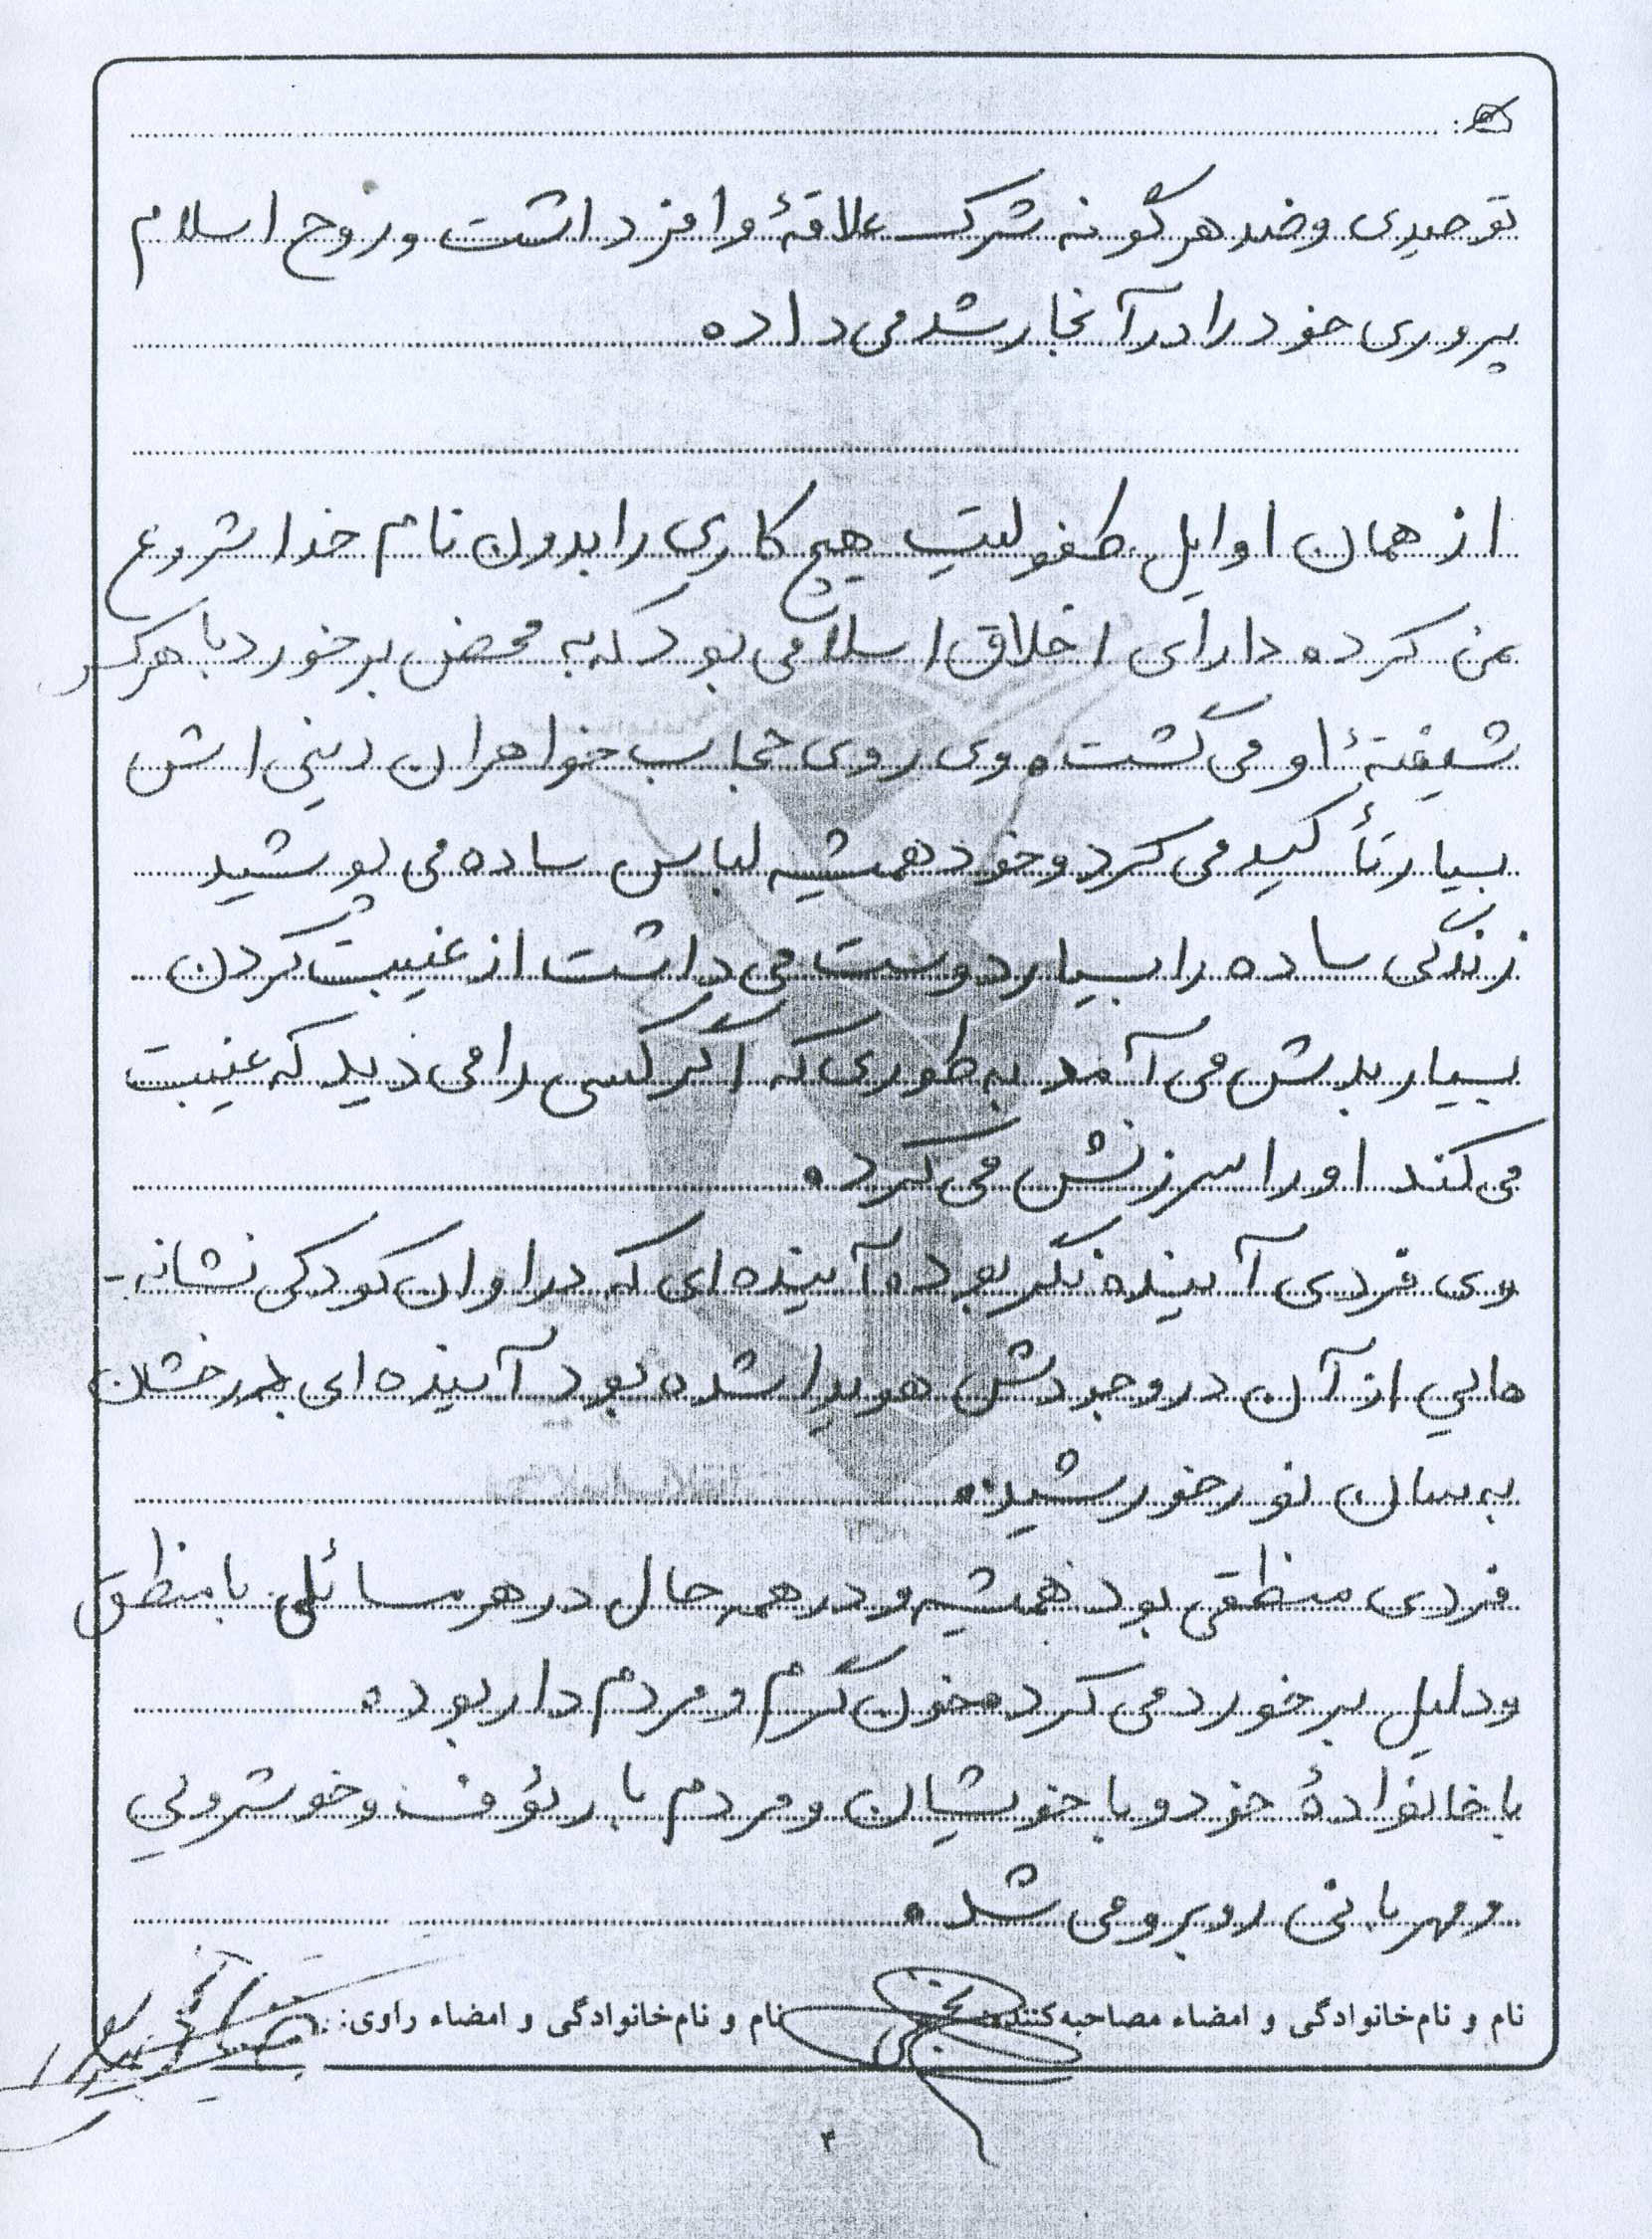 توحیدی و ضد هر گونه شرک علاقهٔ وافر داشت و روح اسلام
پروری خود را در آنجا رشد می داد.
از همان اوایل طفولیت هیچ کاری را بدون نام خدا شروع
نمی کرد. دارای اخلاق اسلامی بود که به محض برخورد با هر کس
شیفتهٔ او می گشت. وی روی حجاب خواهران دینی اش
بسیار تأکید می کرد و خود همیشه لباس ساده می پوشید
زندگی ساده را بسیار دوست می داشت از غیبت کردن
بسیار بدش می آمد به طوری که اگر کسی را می دید که غیبت
می کند او را سرزنش می کرد.
وی فردی آینده نگر بود. آینده ای که در اوان کودکی نشانه-
هایی از آن در وجودش هویدا شده بود آینده ای درخشان
به سان نور خورشید.
فردی منطقی بود همیشه و در همه حال در هر مسائلی با منطق
و دلیل برخورد می کرد. خون گرم و مردم دار بود.
با خانوادهٔ خود و با خویشان و مردم با رئوف و خوشرویی
و مهربانی روبرو می شد.
نام و نام‌خانوادگی و امضاء مصاحبه‌کننده: نام و نام‌خانوادگی و امضاء راوی:
۴